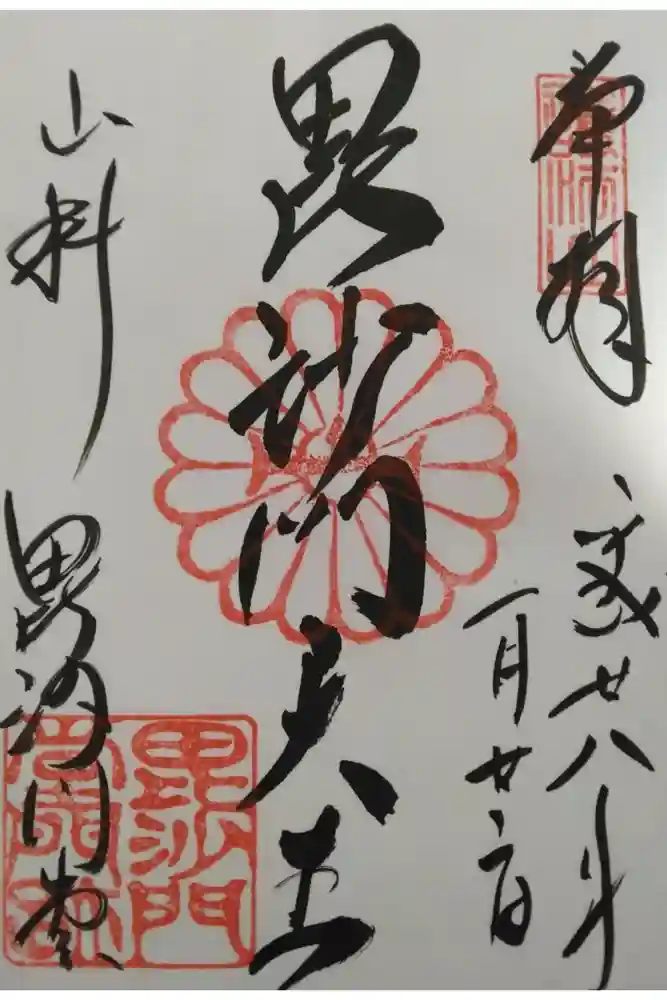 奉拝
平成廿八年
一月廿
毘沙門天王
山科
毘沙門堂
毘沙門